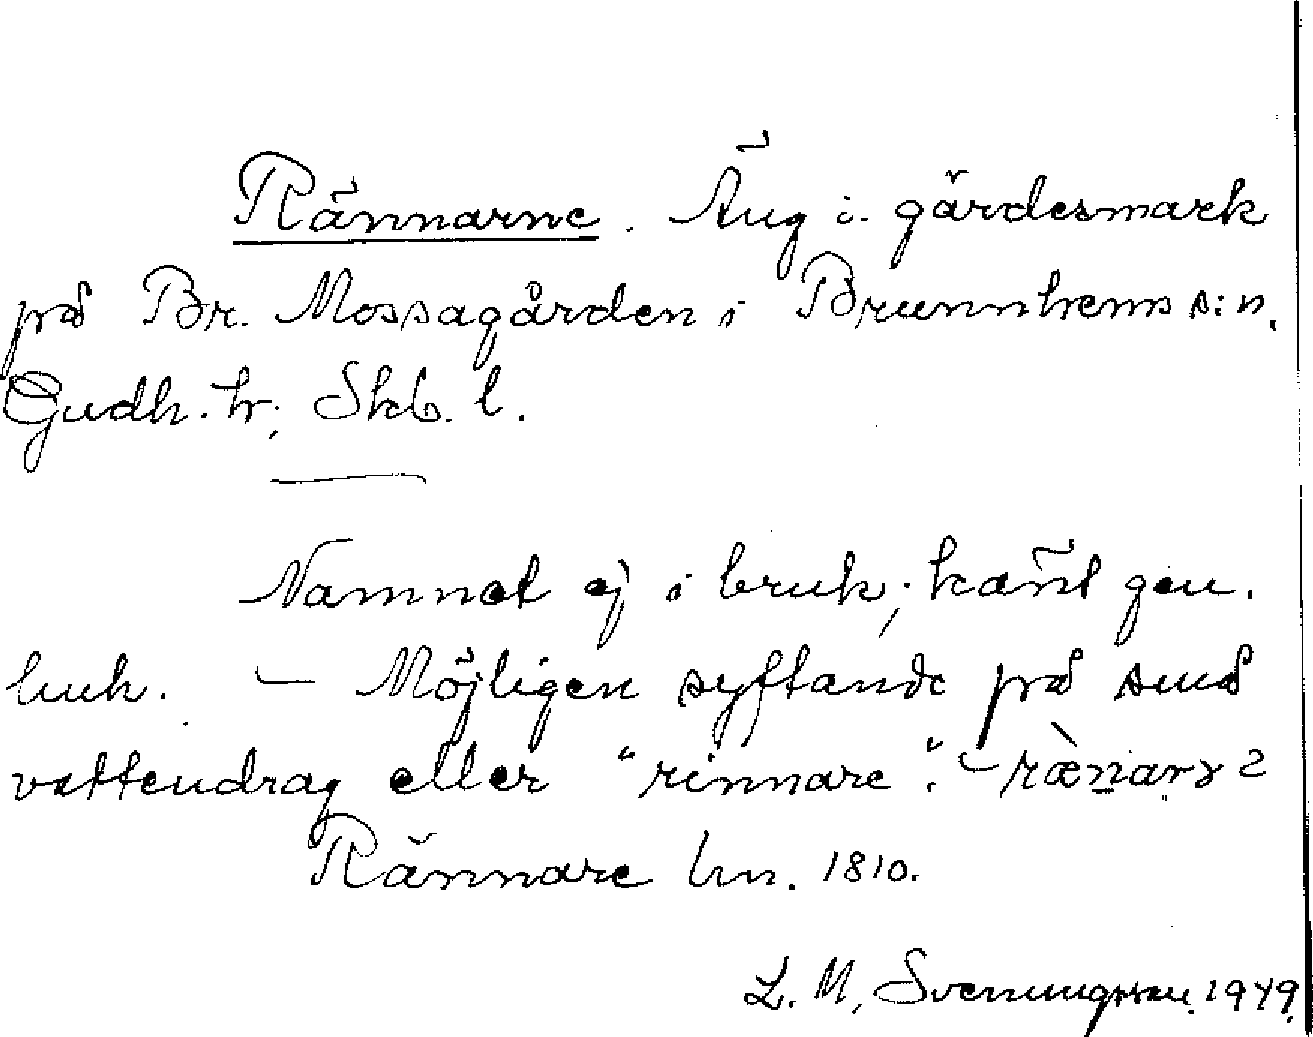 Rännarne. Äng i gärdesmark
på Br. Mossagården i Brunnhems s:n,
Gudh. hr; Skb. l.
Namnet ej i bruk; känt gen.
luh. — Möjligen syftande på små
vattendrag eller "rinnare". —
Rännare hn. 1810.
L. M. Svenungsson. 1949.